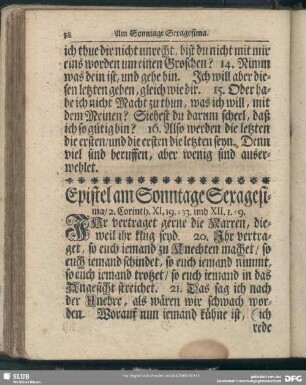 58 Am Sonntage Sexagesima.
ich thue dir nicht unrecht, bist du nicht mit mir
eins worden um einen Groschen? 14. Nimm
was dein ist, und gehe hin. Ich will aber die-
sen letzten geben, gleich wie dir. 15. Oder ha-
be ich nicht Macht zu thun, was ich will, mit
dem Meinen? Siehest du darum scheel, daß
ich so gütig bin? 16. Also werden die letzten
die ersten/ und die ersten die letzten seyn. Denn
viel sind beruffen, aber wenig sind auser-
wehlet.
Epistel am Sonntage Sexagesi-
ma/ 2. Corinth. XI, 19.-33. und XII, 1.-9.
IHr vertraget gerne die Narren, die-
weil ihr klug seyd. 20. Ihr vertra-
get, so euch iemand zu Knechten machet, so
euch iemand schindet, so euch iemand nimmt,
so euch iemand trotzet/ so euch iemand in das
Angesicht streichet. 21. Das sag ich nach
der Unehre, als wären wir schwach wor-
den. Worauf nun iemand kühne ist, (ich
rede
SLUB